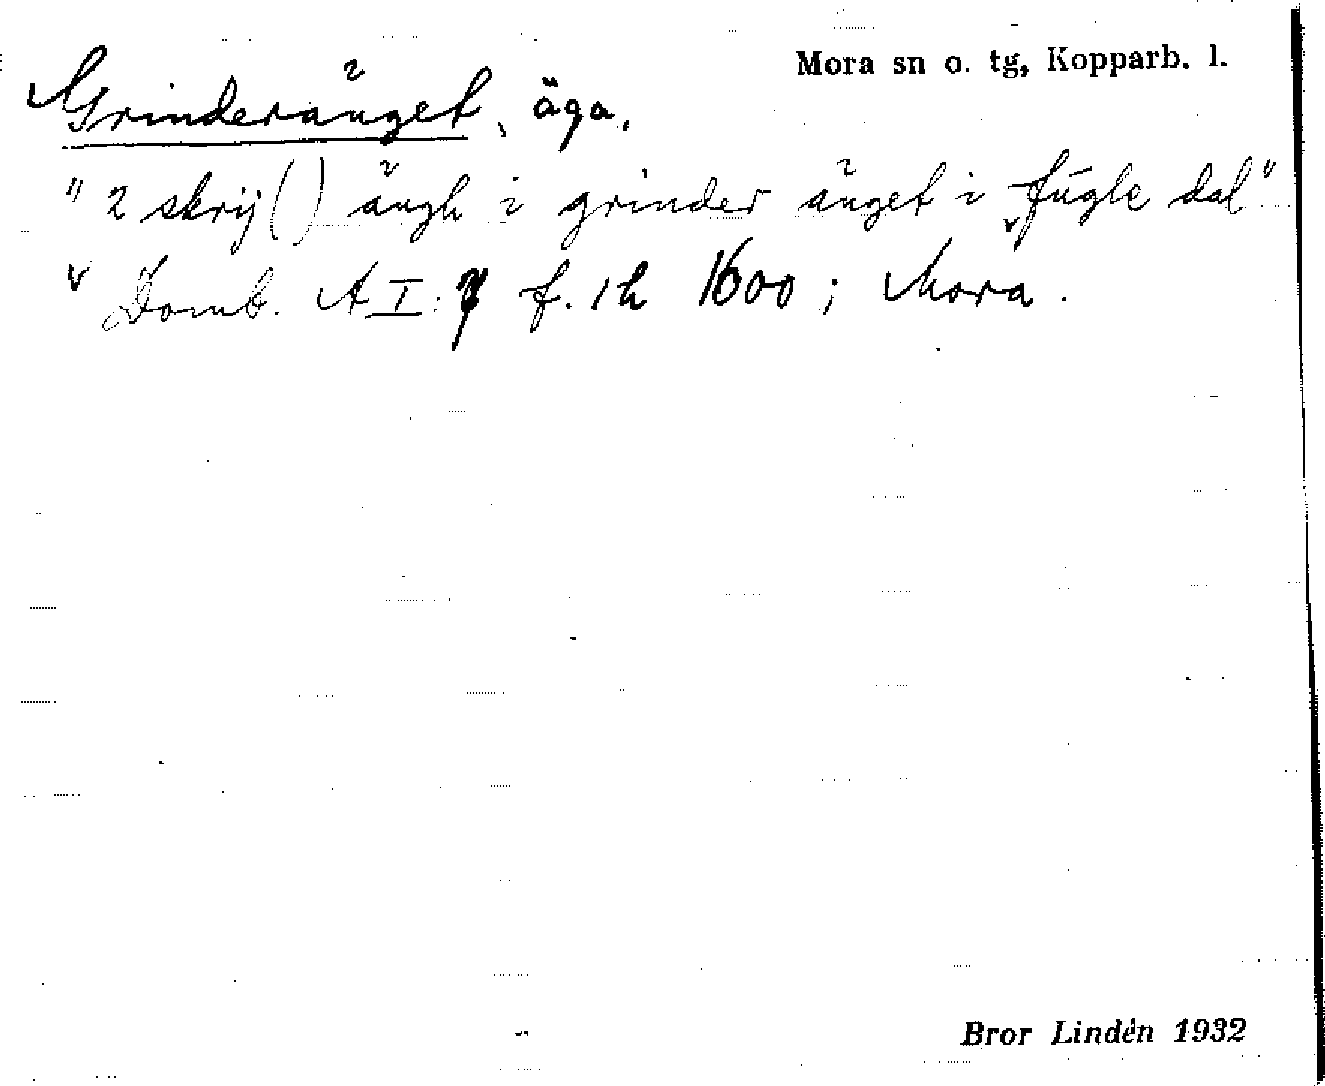 Mora sn o. tg, Kopparb. l.
Grinderänget, äga.
"2 skrij( ) ängh i grinder änget i fúgle dal"
Domb. A I: f. 1h 1600; Mora.
Bror Lindén 1932